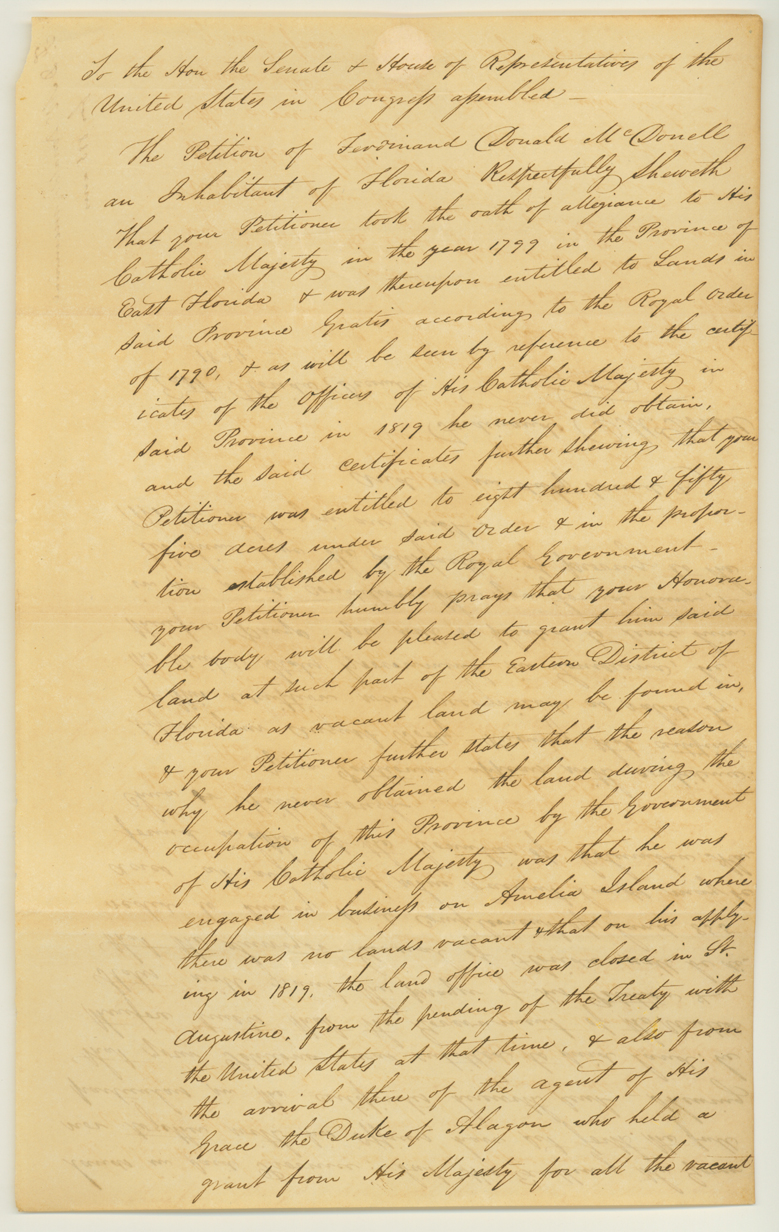 To the Hon the Senate & House of Representatives of the
United States in Congress assembled –
The Petition of Ferdinand Donald McDonell
an Inhabitant of Florida Respectfully Sheweth
That your Petitioner took the oath of allegiance to His
Catholic Majesty in the year 1799 in the Province of
East Florida & was thereupon entitled to Lands in
said Province Gratis according to the Royal order
of 1790, & as will be seen by reference to the certif-
icates of the Officers of His Catholic Majesty in
said Province in 1819 he never did obtain,
and the said certificates further shewing that your
Petitioner was entitled to eight hundred & fifty
five acres under said order & in the propor-
tion established by the Royal Government –
your Petitioner humbly prays that your Honora-
ble body will be pleased to grant him said
land at such part of the Eastern District of
Florida as vacant land may be found in,
& your Petitioner further states that the reason
why he never obtained the land during the
occupation of this Province by the Government
of His Catholic Majesty was that he was
engaged in business on Amelia Island where
there was no lands vacant & that on his apply-
ing in 1819, the land office was closed in St.
Augustine, from the pending of the Treaty with
the United States at that time, & also from
the arrival there of the agent of His
Grace the Duke of Alagon who held a
grant from His Majesty for all the vacant